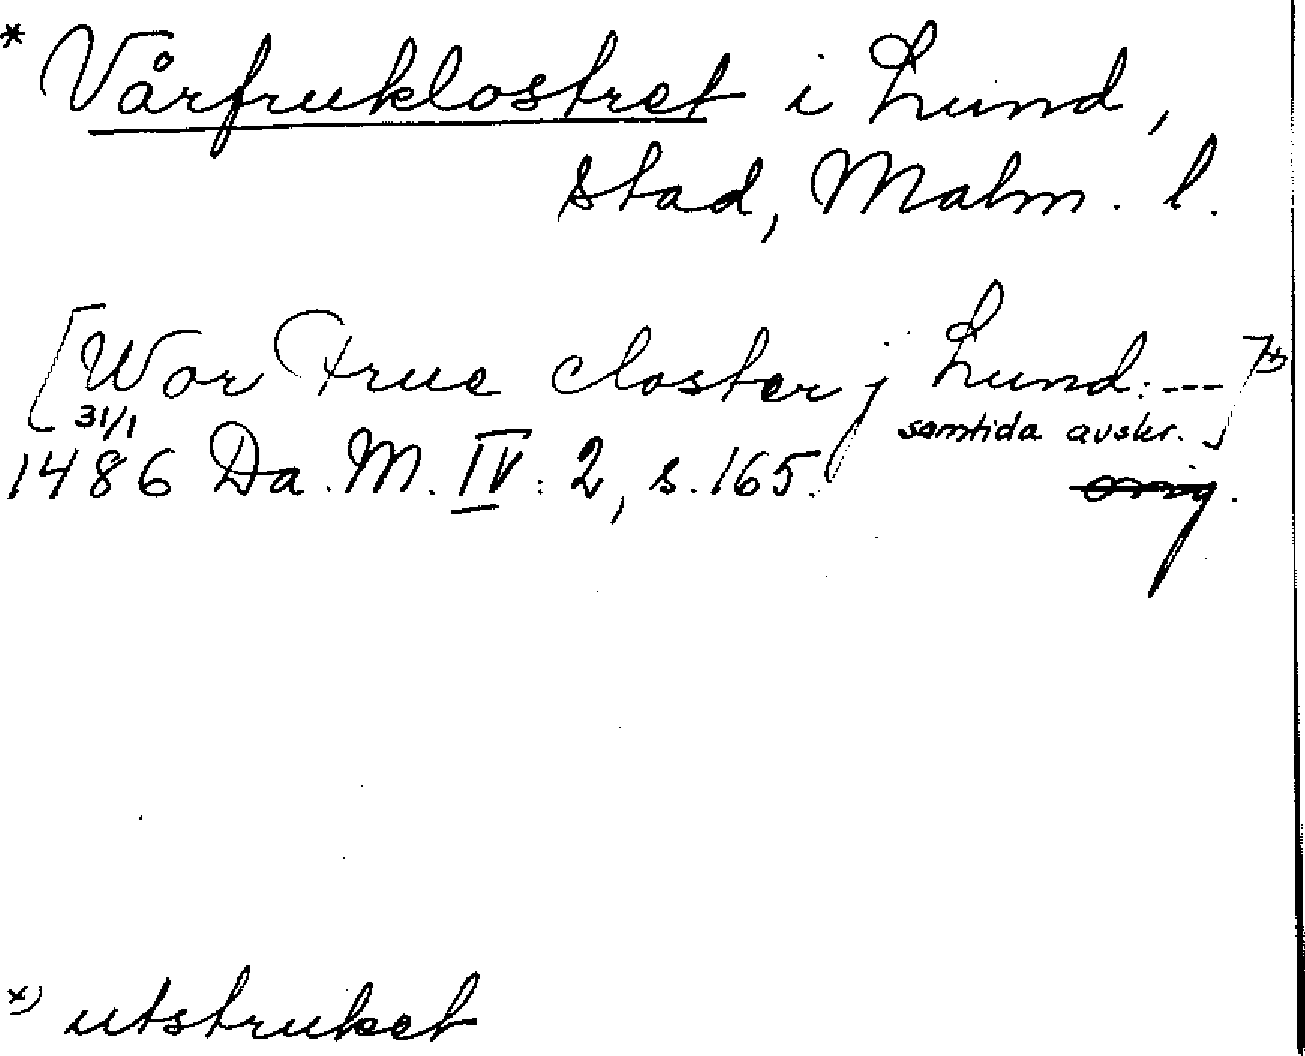 * Vårfruklostret i Lund,
stad, Malm. l.
[Wor Frue closter j Lund: ---] *)
31/1 samtida avskr.
1486 Da. M. IV: 2, s. 165. orig.
*) utstruket